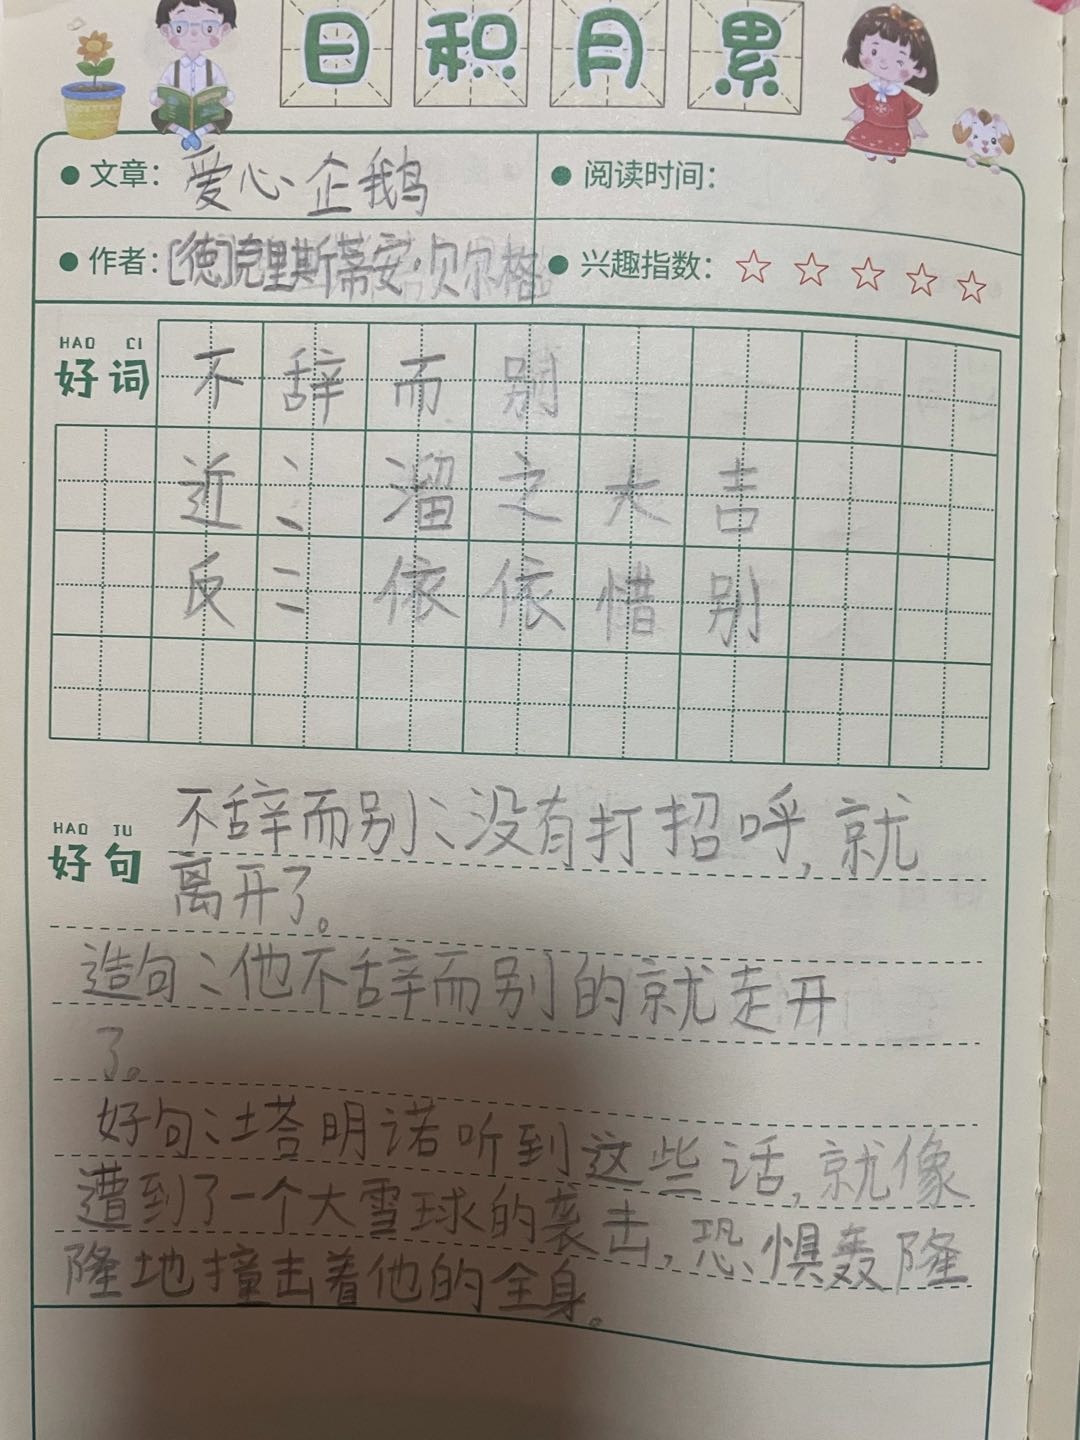 日积月累
文章：爱心企鹅
阅读时间：
作者：[德]克里斯蒂安·贝尔格
兴趣指数：
HAO CI
好词
不辞而别
近：溜之大吉
反：依依惜别
HAO JU
好句
不辞而别：没有打招呼，就
离开了。
造句：他不辞而别的就走开
了。
好句：塔明诺听到这些话，就像
遭到了一个大雪球的袭击，恐惧轰隆
隆地撞击着他的全身。